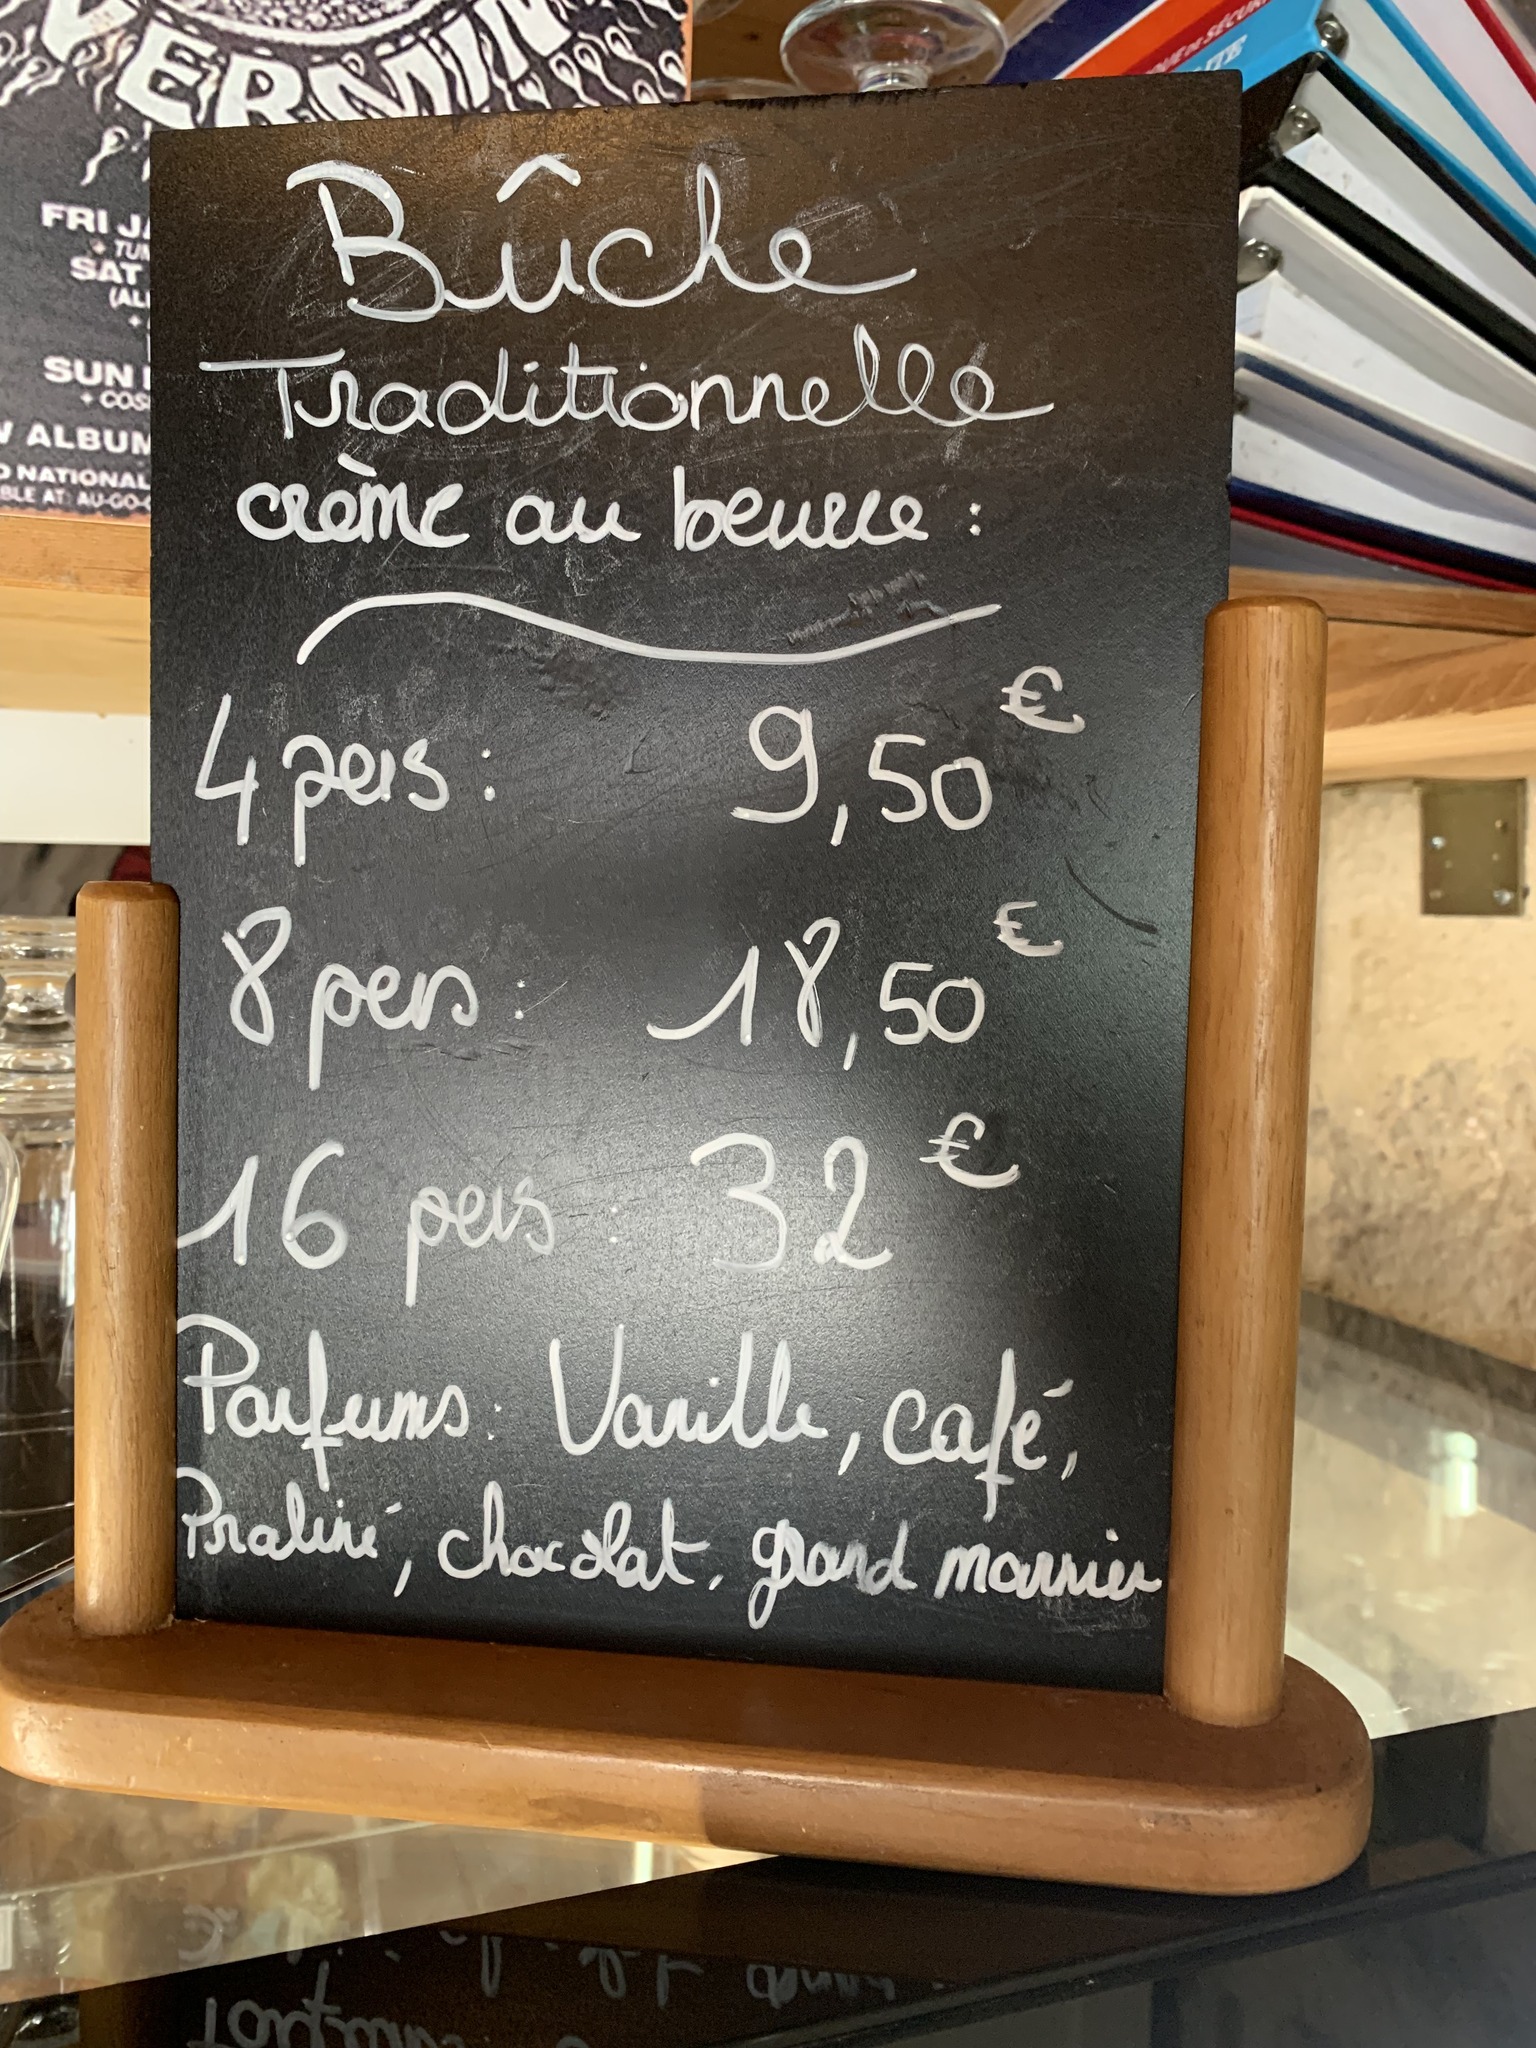 VERMIN
FRI JA
SAT
SUN
+ COS
ALBUM
NATIONAL
BLE AT: AU-GO-G
DE SÉCURI
Bûche
Traditionnelle
crème au beurre :
4 pers : 9,50 €
8 pers : 18,50 €
16 pers : 32 €
Parfums : Vanille, café,
Praliné, chocolat, grand marnier